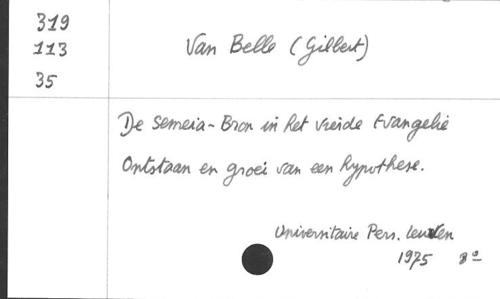 319
113
35
Van Belle (Gilbert)
De Semeia-Bron in het vierde Evangelie
Ontstaan en groei van een hypothese.
Universitaire Pers. Leuven
1975 8º